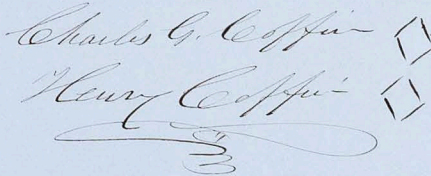 Charles G. Coffin
Henry Coffin